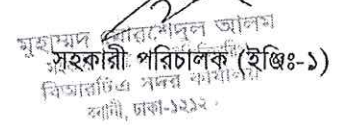 মুহাম্মদ মোরশেদুল আলম
সহকারী পরিচালক (ইঞ্জিঃ-১)
বিআরটিএ সদর কার্যালয়
বনানী, ঢাকা-১২১২